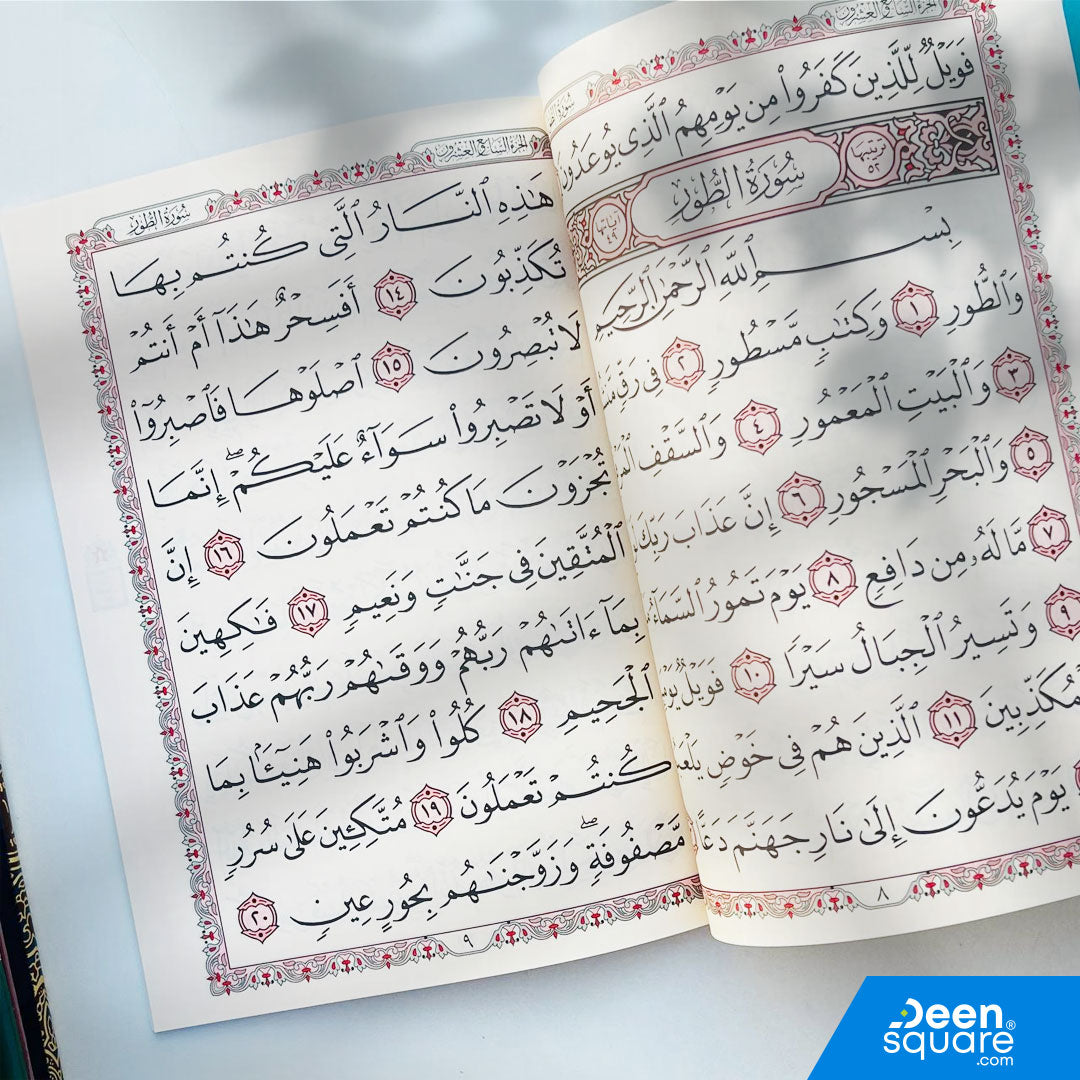 الجزء السابع والعشرون
فَوَيْلٌ لِّلَّذِينَ كَفَرُوا۟ مِن يَوْمِهِمُ ٱلَّذِى يُوعَدُونَ
ترتيبها ٥٢
سُورَةُ الطُّورِ
آياتها ٤٩
بِسْمِ ٱللَّهِ ٱلرَّحْمَٰنِ ٱلرَّحِيمِ
وَٱلطُّورِ ١ وَكِتَٰبٍ مَّسْطُورٍ ٢ فِى رَقٍّ
٣ وَٱلْبَيْتِ ٱلْمَعْمُورِ ٤ وَٱلسَّقْفِ
٥ وَٱلْبَحْرِ ٱلْمَسْجُورِ ٦ إِنَّ عَذَابَ رَبِّكَ
٧ مَّا لَهُۥ مِن دَافِعٍ ٨ يَوْمَ تَمُورُ ٱلسَّمَآءُ
٩ وَتَسِيرُ ٱلْجِبَالُ سَيْرًا ١٠ فَوَيْلٌ
مُكَذِّبِينَ ١١ ٱلَّذِينَ هُمْ فِى خَوْضٍ
يَوْمَ يُدَعُّونَ إِلَىٰ نَارِ جَهَنَّمَ دَعًّا
٨
الجزء السابع والعشرون
سُورَةُ الطُّورِ
هَٰذِهِ ٱلنَّارُ ٱلَّتِى كُنتُم بِهَا
تُكَذِّبُونَ ١٤ أَفَسِحْرٌ هَٰذَآ أَمْ أَنتُمْ
لَا تُبْصِرُونَ ١٥ ٱصْلَوْهَا فَٱصْبِرُوٓا۟
أَوْ لَا تَصْبِرُوا۟ سَوَآءٌ عَلَيْكُمْ ۖ إِنَّمَا
تُجْزَوْنَ مَا كُنتُمْ تَعْمَلُونَ ١٦ إِنَّ
ٱلْمُتَّقِينَ فِى جَنَّٰتٍ وَنَعِيمٍ ١٧ فَٰكِهِينَ
بِمَآ ءَاتَىٰهُمْ رَبُّهُمْ وَوَقَىٰهُمْ رَبُّهُمْ عَذَابَ
ٱلْجَحِيمِ ١٨ كُلُوا۟ وَٱشْرَبُوا۟ هَنِيٓـًٔۢا بِمَا
كُنتُمْ تَعْمَلُونَ ١٩ مُتَّكِـِٔينَ عَلَىٰ سُرُرٍ
مَّصْفُوفَةٍ ۖ وَزَوَّجْنَٰهُم بِحُورٍ عِينٍ ٢٠
٩
Deen
square®
.com